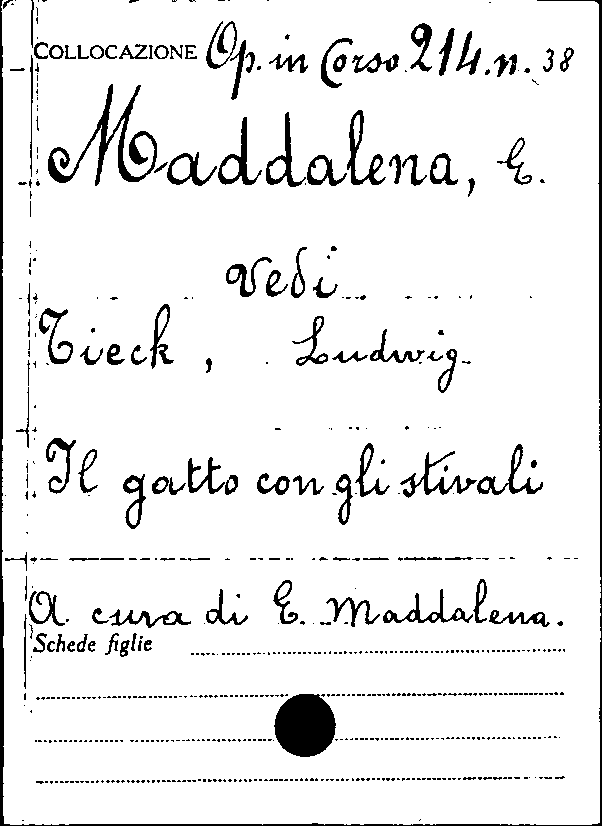 COLLOCAZIONE Op. in Corso 214. n. 38
Maddalena, E.
vedi
Tieck, Ludwig
Il gatto con gli stivali
A cura di E. Maddalena.
Schede figlie